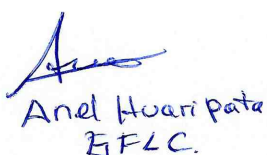 Anel Huaripata
EFLC.